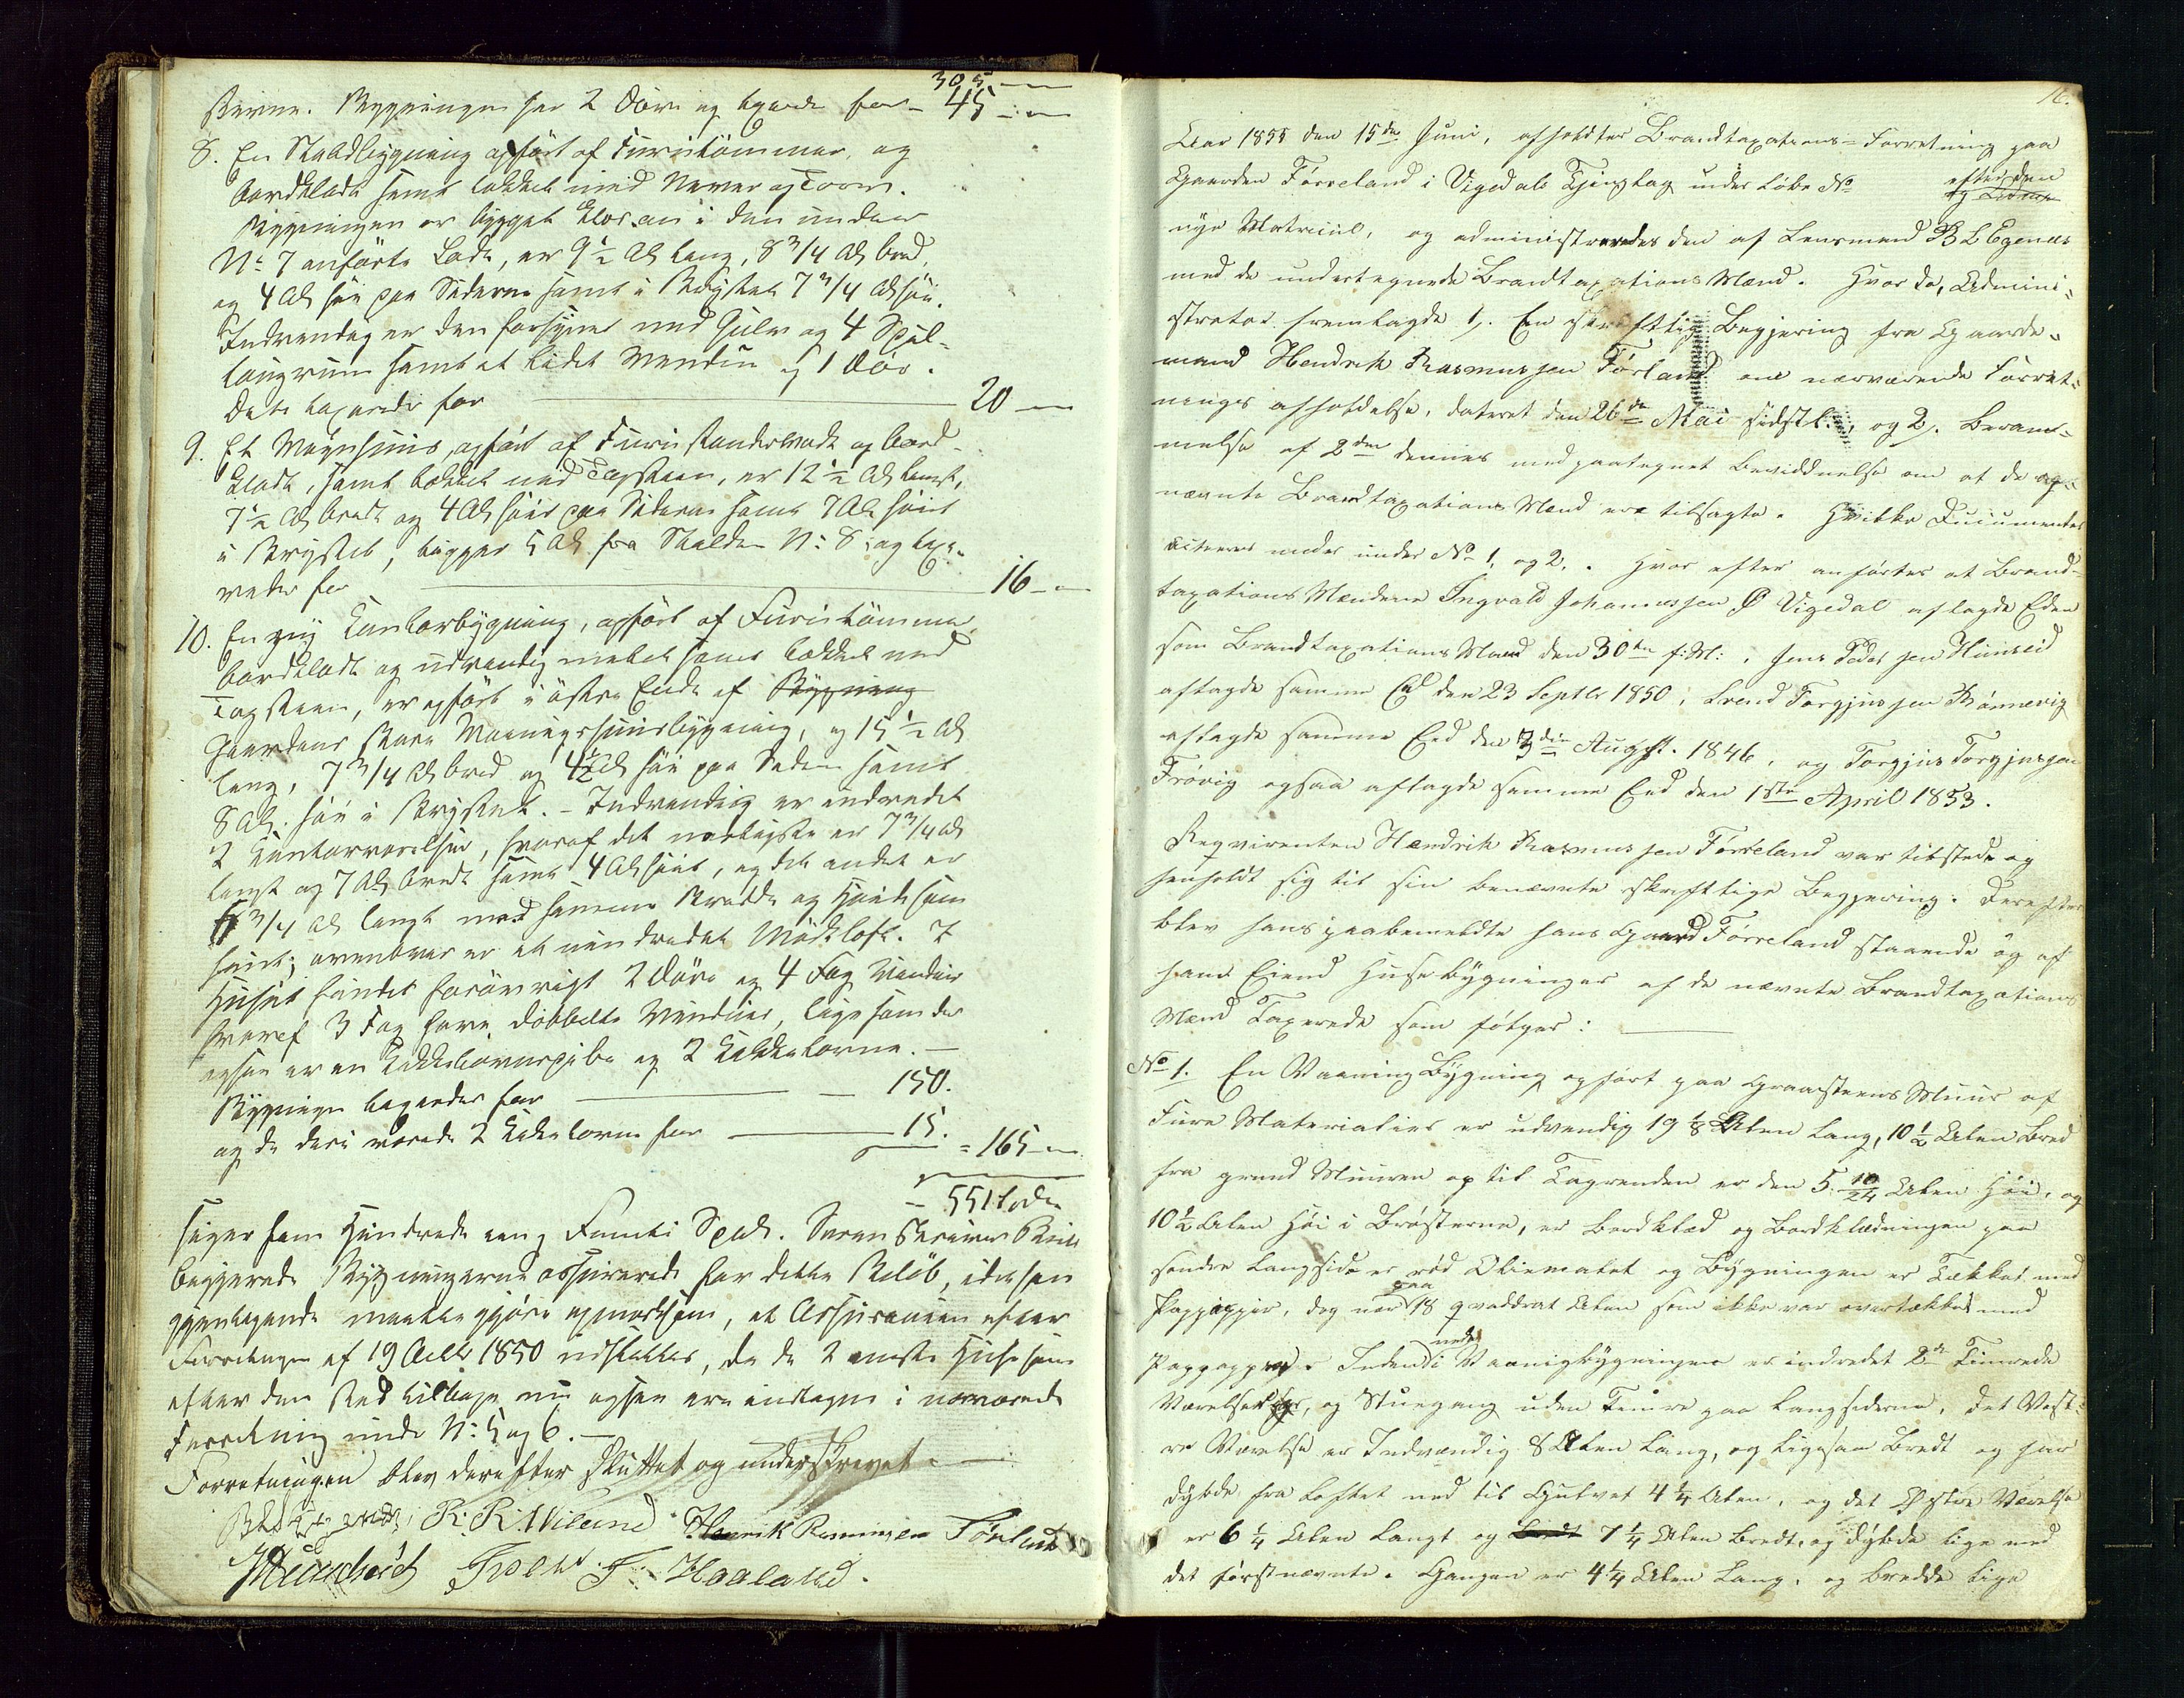 305 —
Steene. Bygningen har 2 Döre og taxeres for — 45 —
8. En Staldbygning opfört af Furutömmer, og
bordklædt samt tækket med Næver og Torv.
Bygningen er bygget klos an i den under
No 7 anförte Lade, er 9 1/2 Al lang, 8 3/4 Al bred,
og 4 Al höi paa Siderne samt i Brystet 7 3/4 Al höi.
Indvendig er den forsynet med Gulv og 4 Spil-
tougrum samt et lidet Vindu og 1 Dör.
Dette taxeredes for — 20 —
9. Et Vognhuus, opfört af Furu Standerverk og bord-
klædt, samt tækket med Tagsteen, er 12 1/2 Al langt,
7 1/2 Al bredt og 4 Al höit paa Siderne samt 7 Al höit
i Brystet, ligger 5 Al fra Stalden No 8, og taxe-
redes for — 16 —
10. En ny Kontorbygning, opfört af Furutömmer
bordklædt og udvendig malet samt tækket med
Tagsteen, er opfört i östre Ende af Bygning
Gaardens store Vaaningshuusbygning, og 15 1/2 Al
lang, 7 3/4 Al bred og 4 1/2 Al höi paa Siderne samt
8 Al. höi i Brystet. — Indvendig er indredet
2 Kontorværelser, hvoraf det nordligste er 7 3/4 Al
langt og 7 Al bredt samt 4 Al höit, og det andet er
3/4 Al langt med samme Bredde og Höide som
hiint; ovenover er et uindredet Mörkloft. I
Huset findes forövrigt 2 Döre og 4 Fag Vinduer
hvoraf 3 Fag have dobbelte Vinduer, ligesom der
ogsaa er en Kakkelovnspibe og 2 Kakkelovne. —
Bygningen taxeredes for — 150.
og de deri værende 2 Kakelovne for — 15.
= 165 —
— 551 Spdr
siger fem Hundrede een og Femti Spdr. Søren
begjerede Bygningerne assurerede for dette Belöb, idet han
gjentagende maatte gjöre opmærksom, at Assurancen efter
Forretningen af 19 Octbr 1850 udslettes, da de 2 eneste Huse som
efter den stod tilbage nu ogsaa ere indtagne i nærværende
Forretning under No 5 og 6. —
Forretningen blev derefter sluttet og underskrevet. —
R. R. Vikene Henrik Rasmusen Förland
F. Haaland.
16.
Aar 1855 den 15de Juni, afholdtes Brandtaxations-Forretning paa
Gaarden Förreland i Vigedals Thinglag under Löbe No efter den
nye Matricul, og administreredes den af Lensmand B L Egenes
med de undertegnede Brandtaxations Mænd. Hvor da, Admini-
strator fremlagde 1/. En skriftlig Begjering fra Gaarde-
mand Hendrik Rasmussen Förland om nærværende Forret-
nings afholdelse, dateret den 26de Mai sidstl., og 2/. Beram-
melse af 2den dennes med paategnet Bevidnelse om at de op-
nævnte Brandtaxations Mænd ere tilsagte. Hvilke Documenter
under No 1, og 2, . Hvor efter anförtes at Brand-
taxations Mændene Ingvald Johannessen Ö Vigedal aflagde Eden
som Brandtaxations Mand den 30te f: M: , Jens Pedersen Himreid
aflagde samme Ed den 23 Septbr 1850, Svend Torgjussen Bönnevig
aflagde samme Eed den 3die August. 1846, og Torgjus Torgjussen
Frövig ogsaa aflagde samme Eed den 1ste April 1853.
Reqvirenten Hendrik Rasmussen Förreland var tilstede og
henholdt sig til sin benævnte skriftlige Begjering. Derefter
blev hans paabemeldte hans Gaard Förreland staaende og af
ham Eiend Husebygninger af de nævnte Brandtaxations
Mænd Taxerede som fölger: —
No 1. En Vaaning Bygning opfört paa Graasteens Muur af
Fure Materialier er udvendig 19 1/8 Alen Lang, 10 1/2 Alen Bred
fra grund Muuren op til Tagrenden er den 5 10/24 Alen Höi, og
10 1/2 Alen Höi i Brösterne, er bordklæd og Bordklædningen paa
söndre Langside er röd Oliemalet og Bygningen er Tækket med
Pappapper, dog var paa 18 qvaddrat Alen som ikke var overtækket med
Pappapper. Inden i nedre Vaanigbygningen er indredet 2de Timrede
Værelser, og Stuegang uden Timre paa Langsiderne, Det Vest-
re Værelse er Indvendig 8 Alen Lang, og ligesaa Bredt og har
dybde fra Loftet ned til Gulvet 4 1/4 Alen, og det Östre Værelse
er 6 1/4 Alen Langt og Bredt 7 1/4 Alen Bredt, og dybde lige med
det förstnævnte. Gangen er 4 1/4 Alen Lang, og Bredde lige